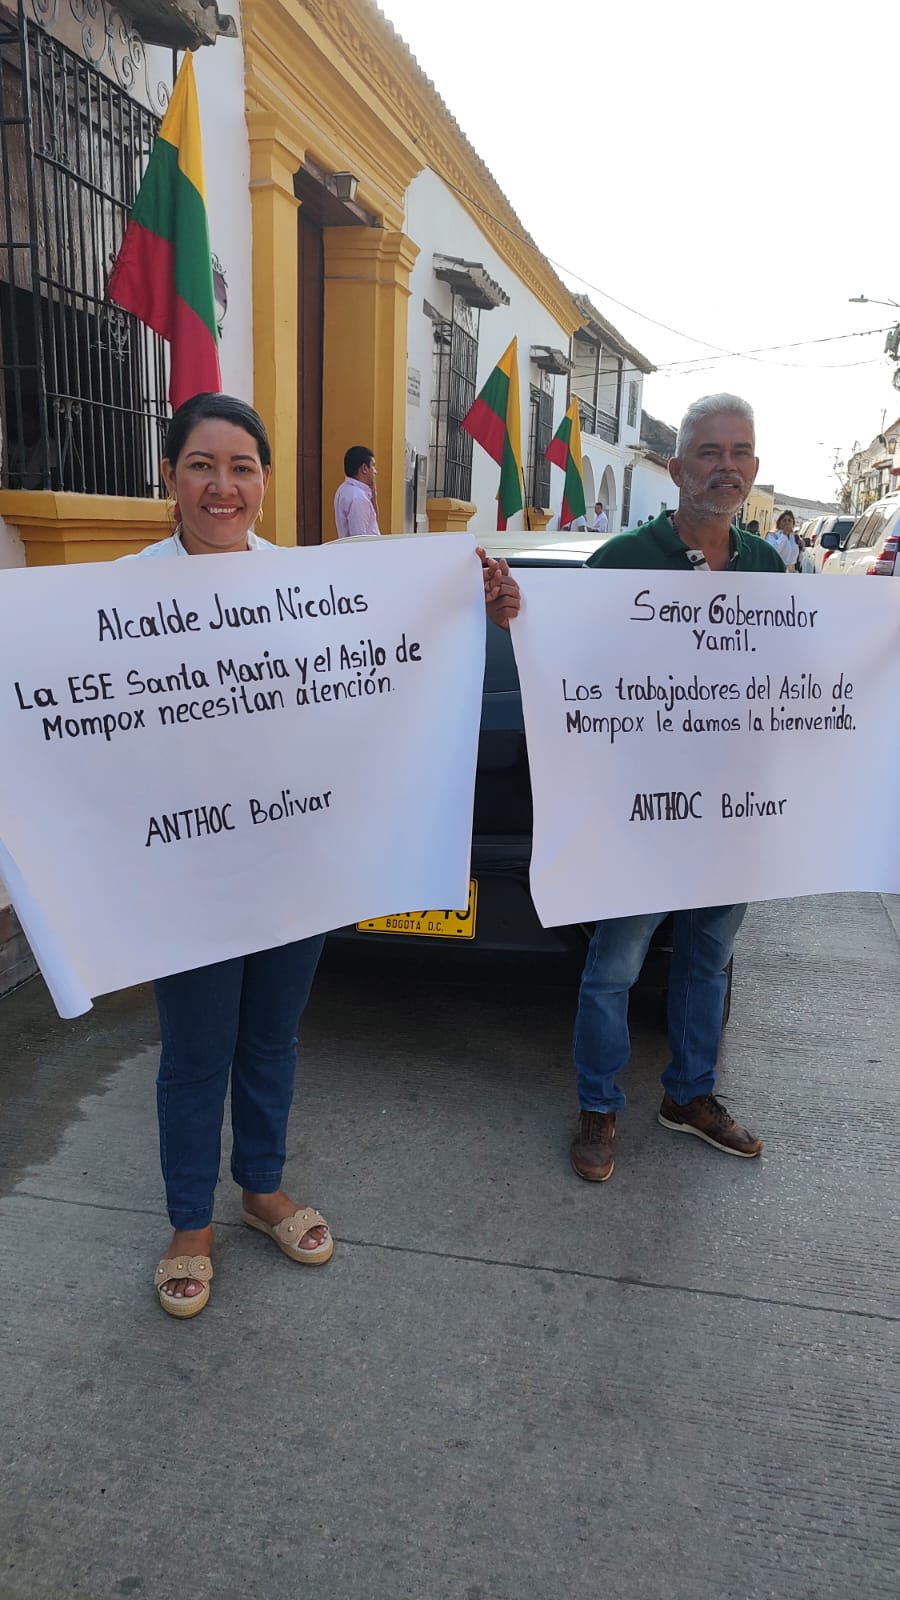 Alcalde Juan Nicolas
La ESE Santa Maria y el Asilo de
Mompox necesitan atención.
ANTHOC Bolivar
Señor Gobernador
Yamil.
Los trabajadores del Asilo de
Mompox le damos la bienvenida.
ANTHOC Bolivar
BOGOTA D.C.